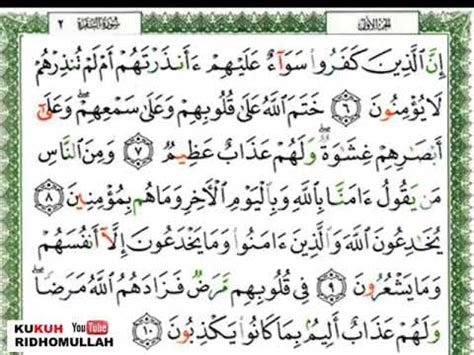 سُورَةُ البَقَرَةِ ٢ الجُزْءُ الأَوَّلُ
إِنَّ ٱلَّذِينَ كَفَرُوا۟ سَوَآءٌ عَلَيْهِمْ ءَأَنذَرْتَهُمْ أَمْ لَمْ تُنذِرْهُمْ
لَا يُؤْمِنُونَ ٦ خَتَمَ ٱللَّهُ عَلَىٰ قُلُوبِهِمْ وَعَلَىٰ سَمْعِهِمْ ۖ وَعَلَىٰٓ
أَبْصَٰرِهِمْ غِشَٰوَةٌ ۖ وَلَهُمْ عَذَابٌ عَظِيمٌ ٧ وَمِنَ ٱلنَّاسِ
مَن يَقُولُ ءَامَنَّا بِٱللَّهِ وَبِٱلْيَوْمِ ٱلْءَاخِرِ وَمَا هُم بِمُؤْمِنِينَ ٨
يُخَٰدِعُونَ ٱللَّهَ وَٱلَّذِينَ ءَامَنُوا۟ وَمَا يَخْدَعُونَ إِلَّآ أَنفُسَهُمْ
وَمَا يَشْعُرُونَ ٩ فِى قُلُوبِهِم مَّرَضٌ فَزَادَهُمُ ٱللَّهُ مَرَضًا ۖ
وَلَهُمْ عَذَابٌ أَلِيمٌۢ بِمَا كَانُوا۟ يَكْذِبُونَ ١٠
KUKUH YouTube
RIDHOMULLAH